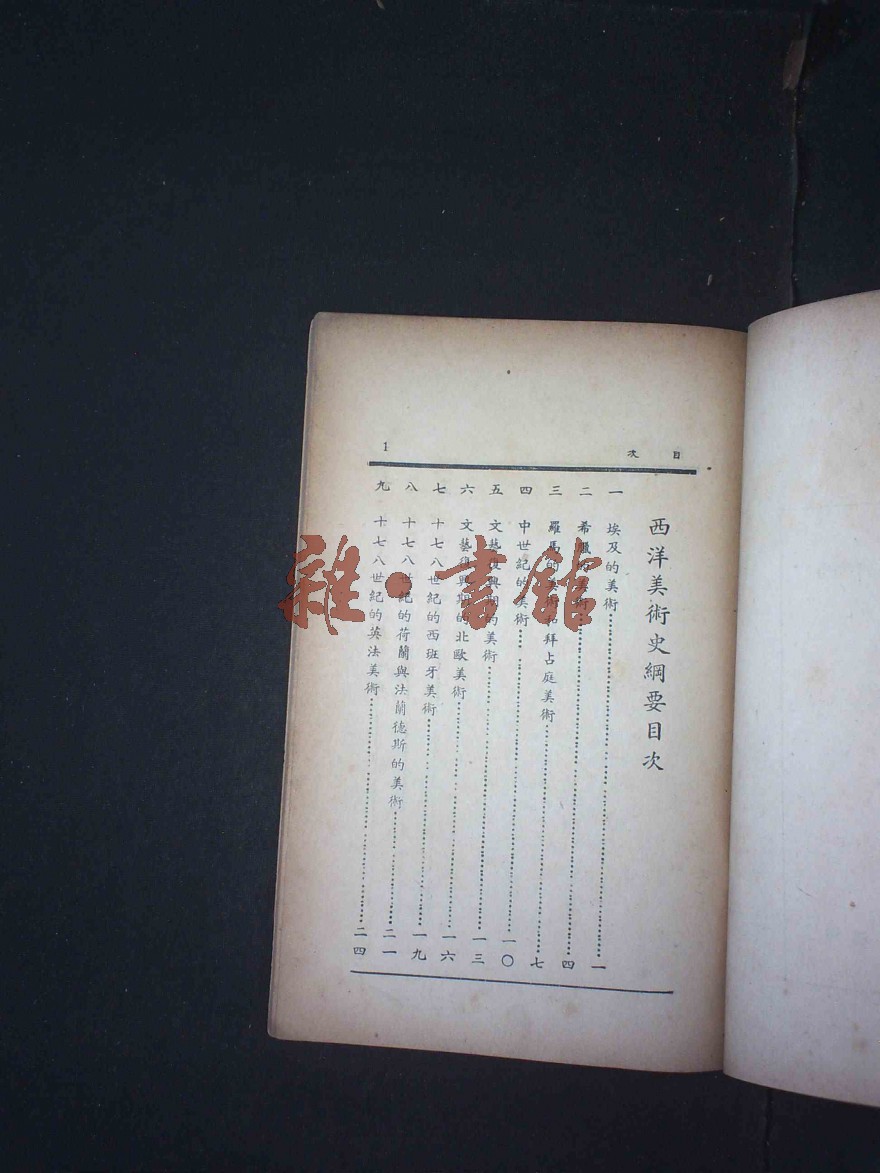 目次
1
西洋美術史綱要目次
一 埃及的美術……一
二 希臘的美術……四
三 羅馬的美術和拜占庭美術……七
四 中世紀的美術……一〇
五 文藝復興期的美術……一三
六 文藝復興期的北歐美術……一六
七 十七八世紀的西班牙美術……一九
八 十七八世紀的荷蘭與法蘭德斯的美術……二一
九 十七八世紀的英法美術……二四
雜·書館